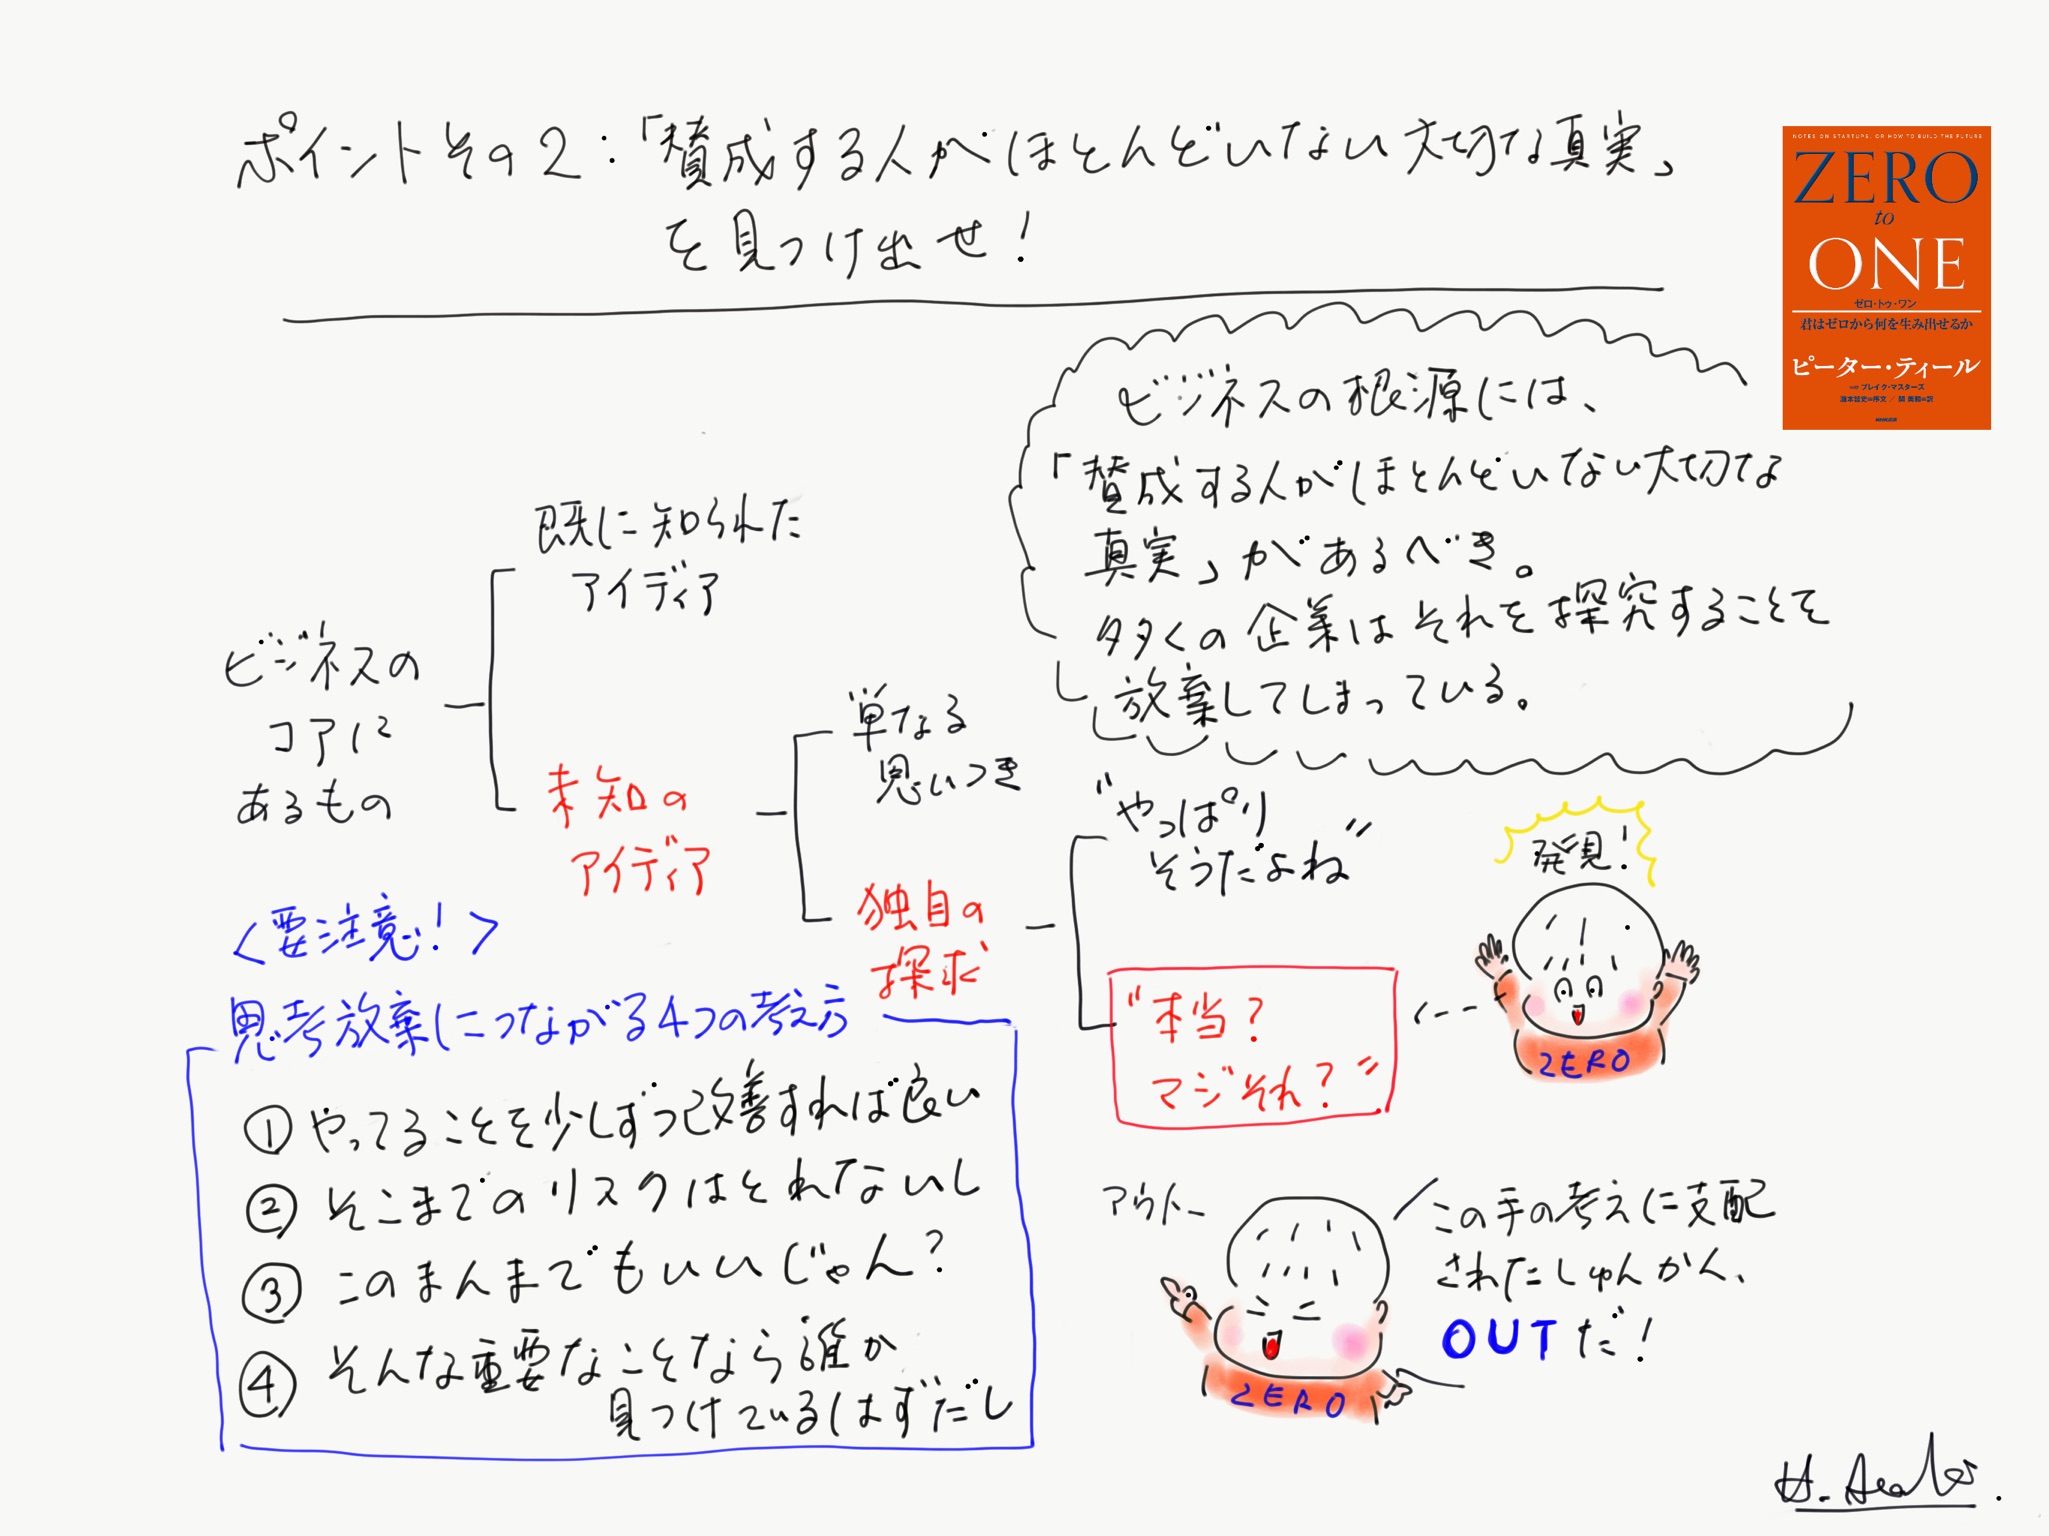 ポイントその2:「賛成する人がほとんどいない大切な真実」
を見つけ出せ!
NOTES ON STARTUPS, OR HOW TO BUILD THE FUTURE
ZERO
to
ONE
ゼロ・トゥ・ワン
君はゼロから何を生み出せるか
ピーター・ティール
with ブレイク・マスターズ
瀧本哲史=序文/関美和=訳
ビジネスの根源には、
「賛成する人がほとんどいない大切な
真実」があるべき。
多くの企業はそれを探究することを
放棄してしまっている。
ビジネスの
コアに
あるもの
既に知られた
アイディア
未知の
アイディア
単なる
思いつき
独自の
探求
"やっぱり
そうだよね"
"本当?
マジそれ?"
発見!
ZERO
<要注意!>
思考放棄につながる4つの考え方
① やってることを少しずつ改善すれば良い
② そこまでのリスクはとれないし
③ このまんまでもいいじゃん?
④ そんな重要なことなら誰か
見つけているはずだし
アウトー
ZERO
この手の考えに支配
されたしゅんかん、
OUTだ!